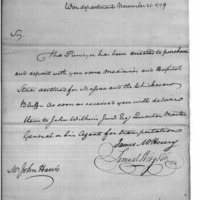 War department November 20. 1799
Sir,
The Purveyor has been directed to purchase
and deposit with you some Medicines and Hospital
Stores destined for Massac and the Chickasaw
Bluffs. As soon as received you will deliver
them to John Wilkins Jund Esq Quarter Master
General or his Agent for transportation
James McHenry
Samuel Hodgdon
Mr John Harris